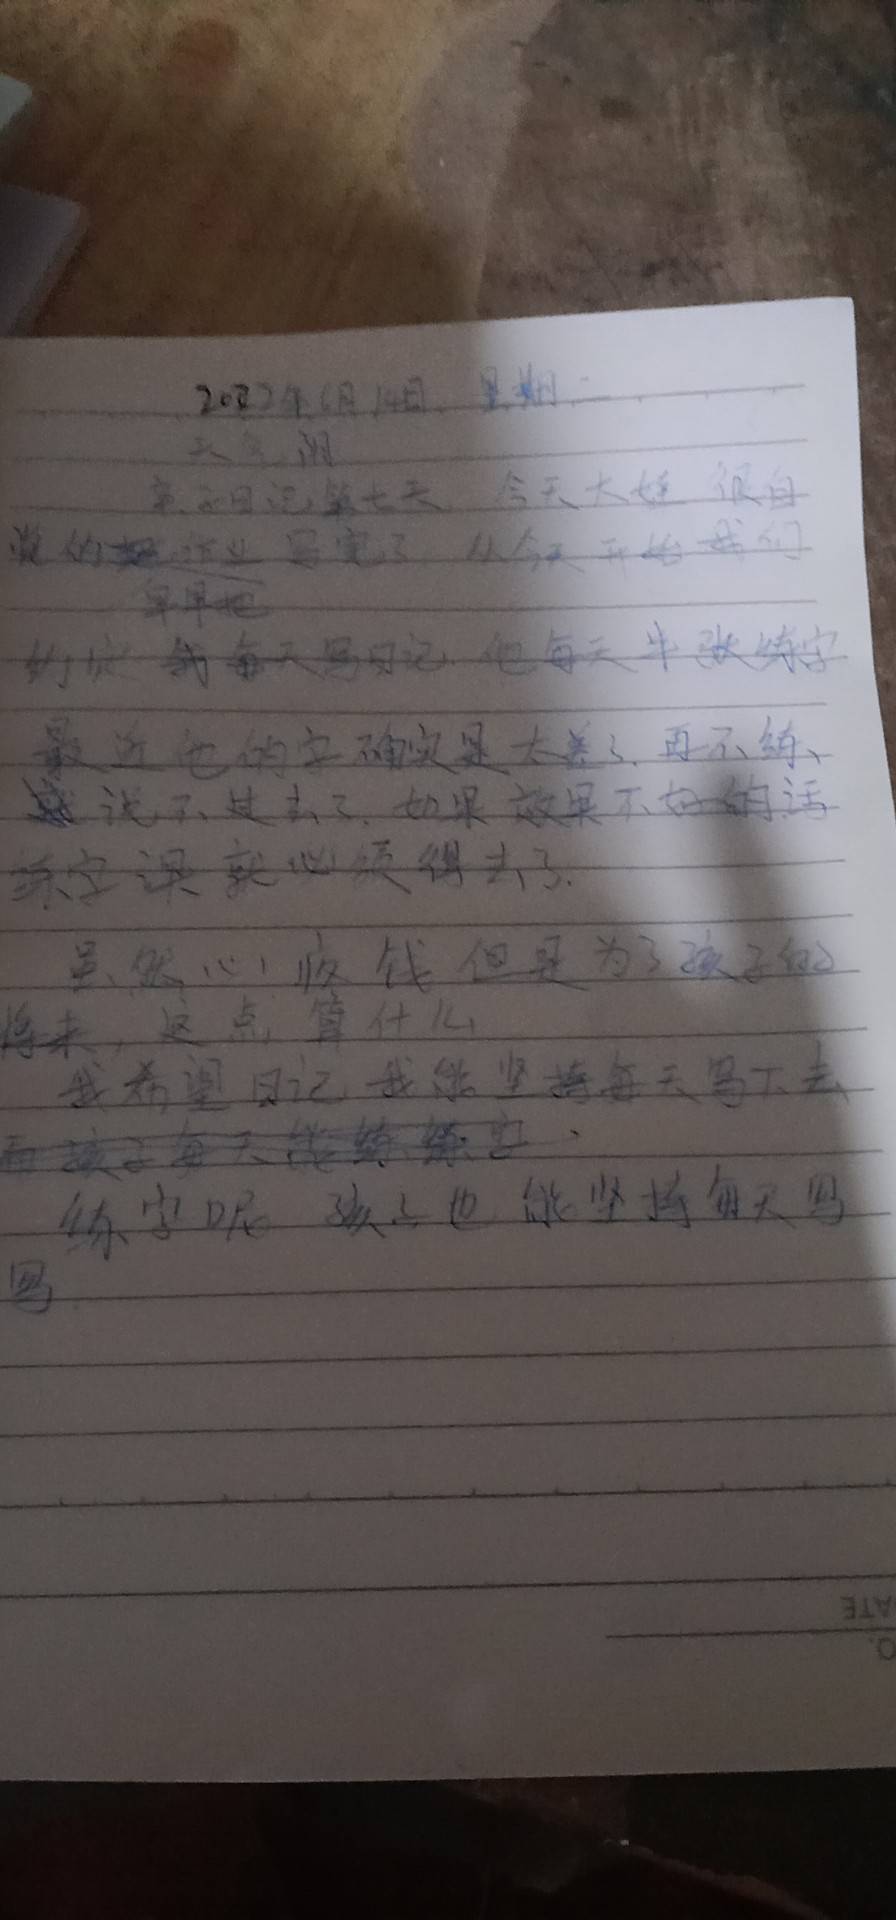 2022年6月14日 星期二
天气 阴
亲子日记第七天 今天大娃 很自
觉的把作业写完了 从今天开始我们
早早地
约定 我每天写日记 他每天半张练字
最近他的字确实是太差了.再不练、
说不过去了.如果效果不好的话
练字课就必须得去了.
虽然心疼钱但是为了孩子的
将来,这点算什么
我希望日记我能坚持每天写下去
而孩子每天能练练字、
练字呢 孩子也能坚持每天写
写
DATE
O.